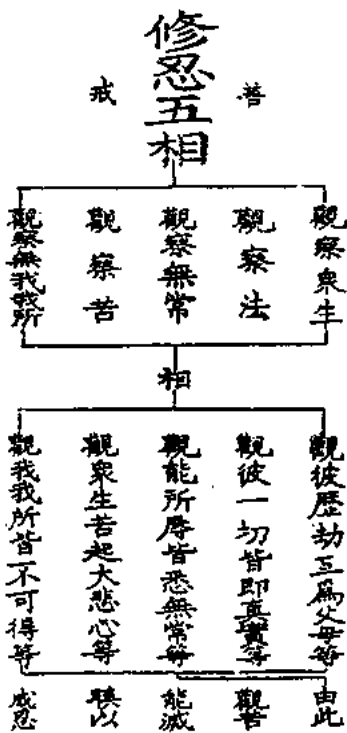 修忍五相
善
戒
觀察衆生
觀察法
觀察無常
觀察苦
觀察無我我所
相
觀彼歷劫互爲父母等
觀彼一切皆即真實等
觀能所辱皆悉無常等
觀衆生苦起大悲心等
觀我我所皆不可得等
由此
觀苦
能滅
瞋以
成忍